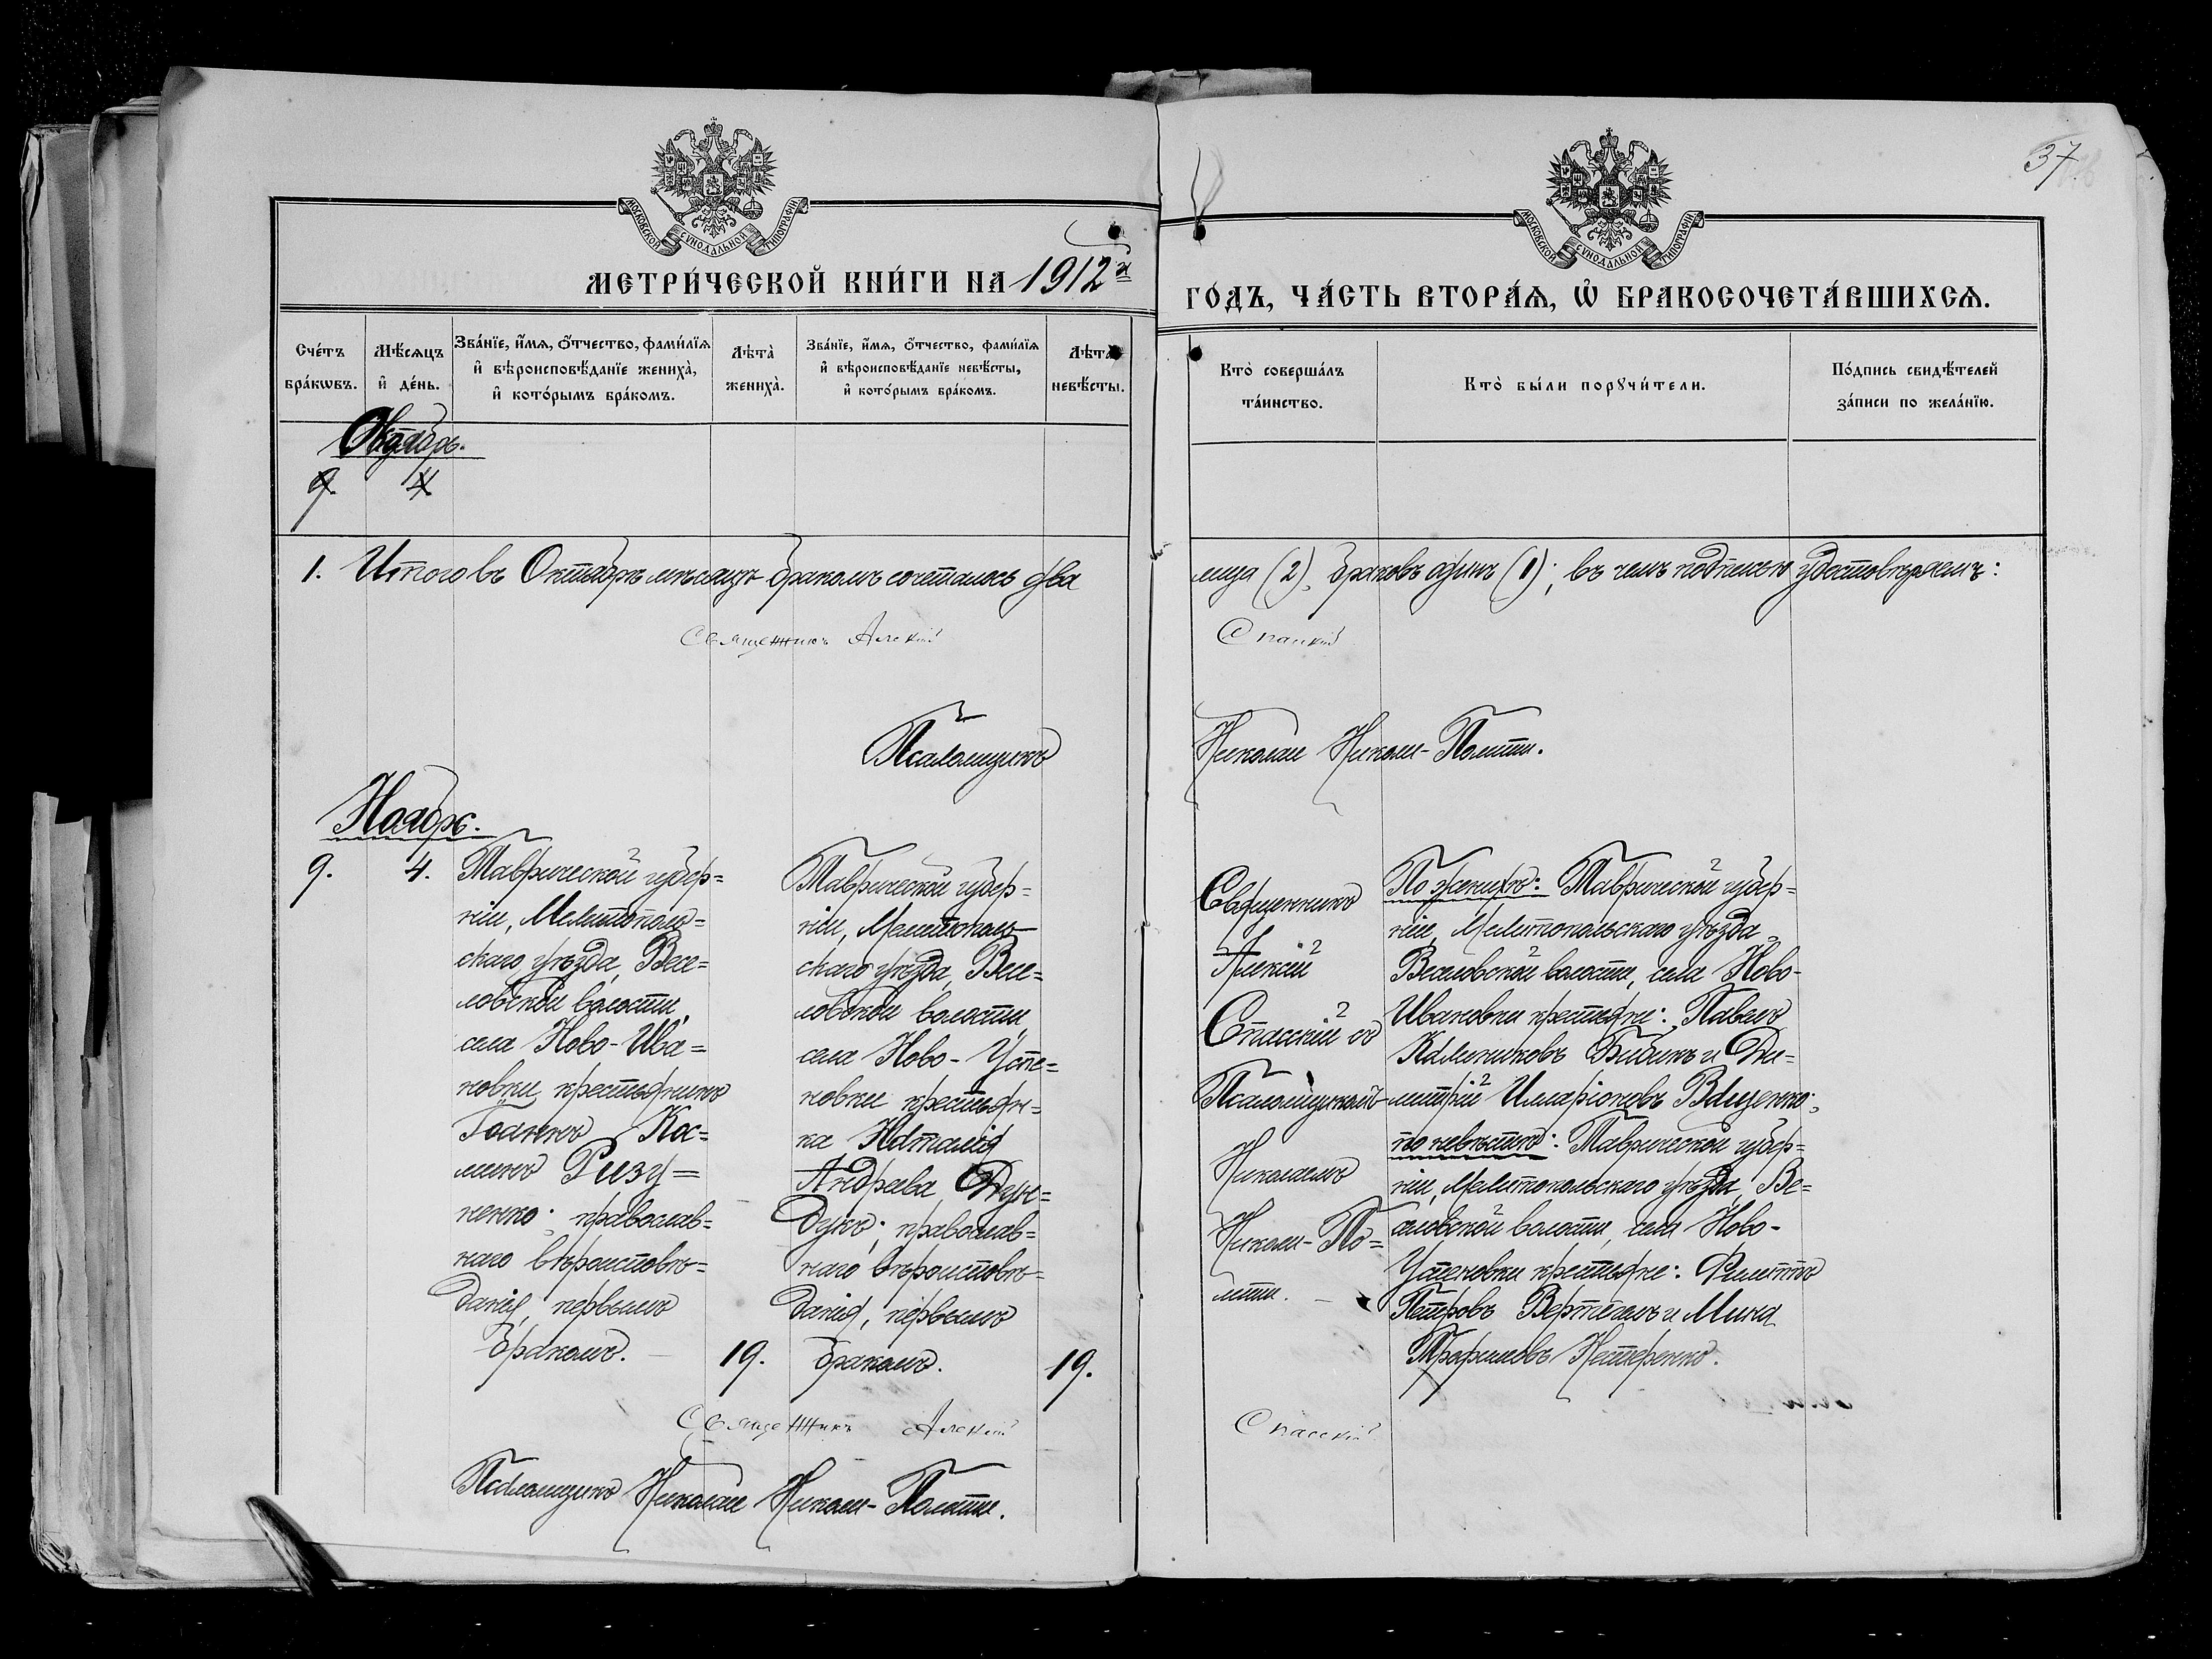 37
МОСКОВСКОЙ СУНОДАЛЬНОЙ ТИПОГРАФІИ
МОСКОВСКОЙ СУНОДАЛЬНОЙ ТИПОГРАФІИ
МЕТРИ́ЧЕСКОЙ КНИ́ГИ НА 1912й
ГО́ДЪ, ЧА́СТЬ ВТОРА́Ѧ, Ѡ҆ БРАКОСОЧЕТА́ВШИХСѦ.
Сче́тъ бра́кѡвъ.
Мѣ́сѧцъ и҆ де́нь.
Зва́нїе, и҆́мѧ, ѻ҆́тчество, фами́лїѧ и҆ вѣроисповѣ́данїе жениха̀, и҆ кото́рымъ бра́комъ.
Лѣта̀ жениха̀.
Зва́нїе, и҆́мѧ, ѻ҆́тчество, фами́лїѧ и҆ вѣроисповѣ́данїе невѣ́сты, и҆ кото́рымъ бра́комъ.
Лѣта̀ невѣ́сты.
Кто̀ соверша́лъ та́инство.
Кто̀ бы́ли порꙋчи́тели.
По́дпись свидѣ́телей за́писи по жела́нїю.
Октябрь.
9. 4
1. Итого въ Октябрѣ мѣсяцѣ бракомъ сочеталось два лица (2), браковъ одинъ (1); въ чемъ подписью удостовѣряемъ:
Священникъ Алексій Спасскій
Псаломщикъ Николай Николи-Политы.
Ноябрь.
9.
4.
Таврической губер=
ніи, Мелитополь=
скаго уѣзда, Весе=
ловской волости,
села Ново-Ива=
новки крестьянинъ
Іоаннъ Кос=
минъ Ризу=
ненко; православ=
наго вѣроисповѣ=
данія, первымъ
бракомъ.
19.
Таврической губер=
ніи, Мелитополь-
скаго уѣзда, Весе=
ловской волости,
села Ново-Успе=
новки крестьян=
ка Наталія
Андреева Дун=
дукъ; православ=
наго вѣроисповѣ=
данія, первымъ
бракомъ.
19.
Священникъ
Алексій
Спасскій со
Псаломщикомъ
Николаемъ
Николи-По=
литы.
По женихѣ: Таврической губер=
ніи, Мелитопольскаго уѣзда,
Веселовской волости, села Ново-
Ивановки крестьяне: Павелъ
Калиниковъ Бибикъ и Ди=
митрій Илларіоновъ Ващенко;
по невѣстѣ: Таврической губер=
ніи, Мелитопольскаго уѣзда, Ве=
селовской волости, села Ново-
Успеновки крестьяне: Филиппъ
Петровъ Вертегелъ и Мина
Трофимовъ Нестеренко.
Священникъ Алексій Спасскій
Псаломщикъ Николай Николи-Политы.